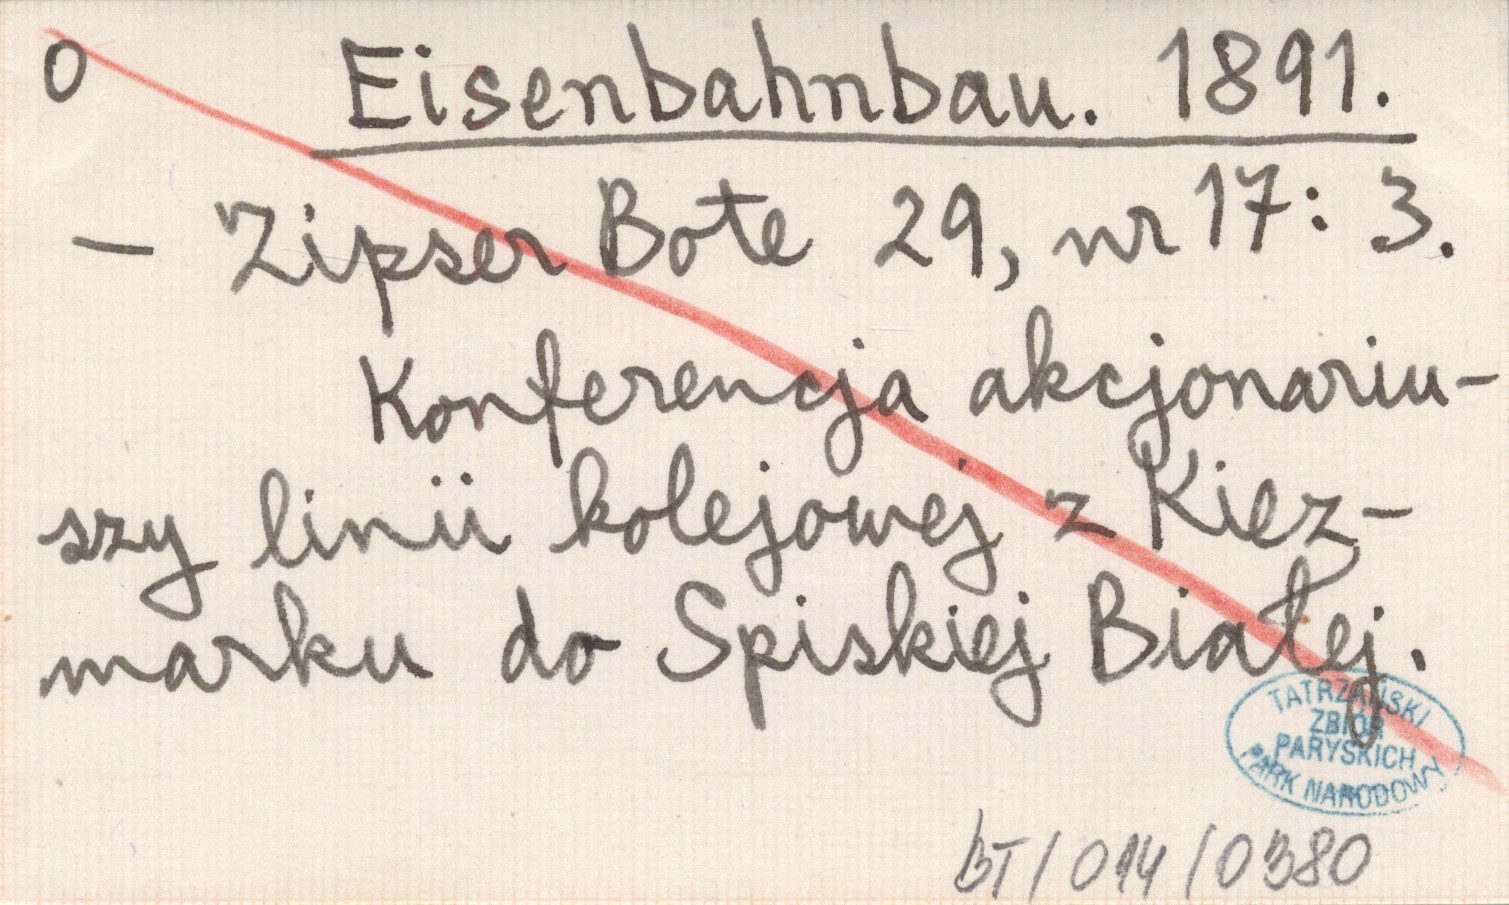 O Eisenbahnbau. 1891.
— Zipser Bote 29, nr 17: 3.
Konferencja akcjonariu-
szy linii kolejowej z Kież-
marku do Spiskiej Białej.
TATRZAŃSKI
ZBIÓR
PARYSKICH
PARK NARODOWY
BT/014/0380